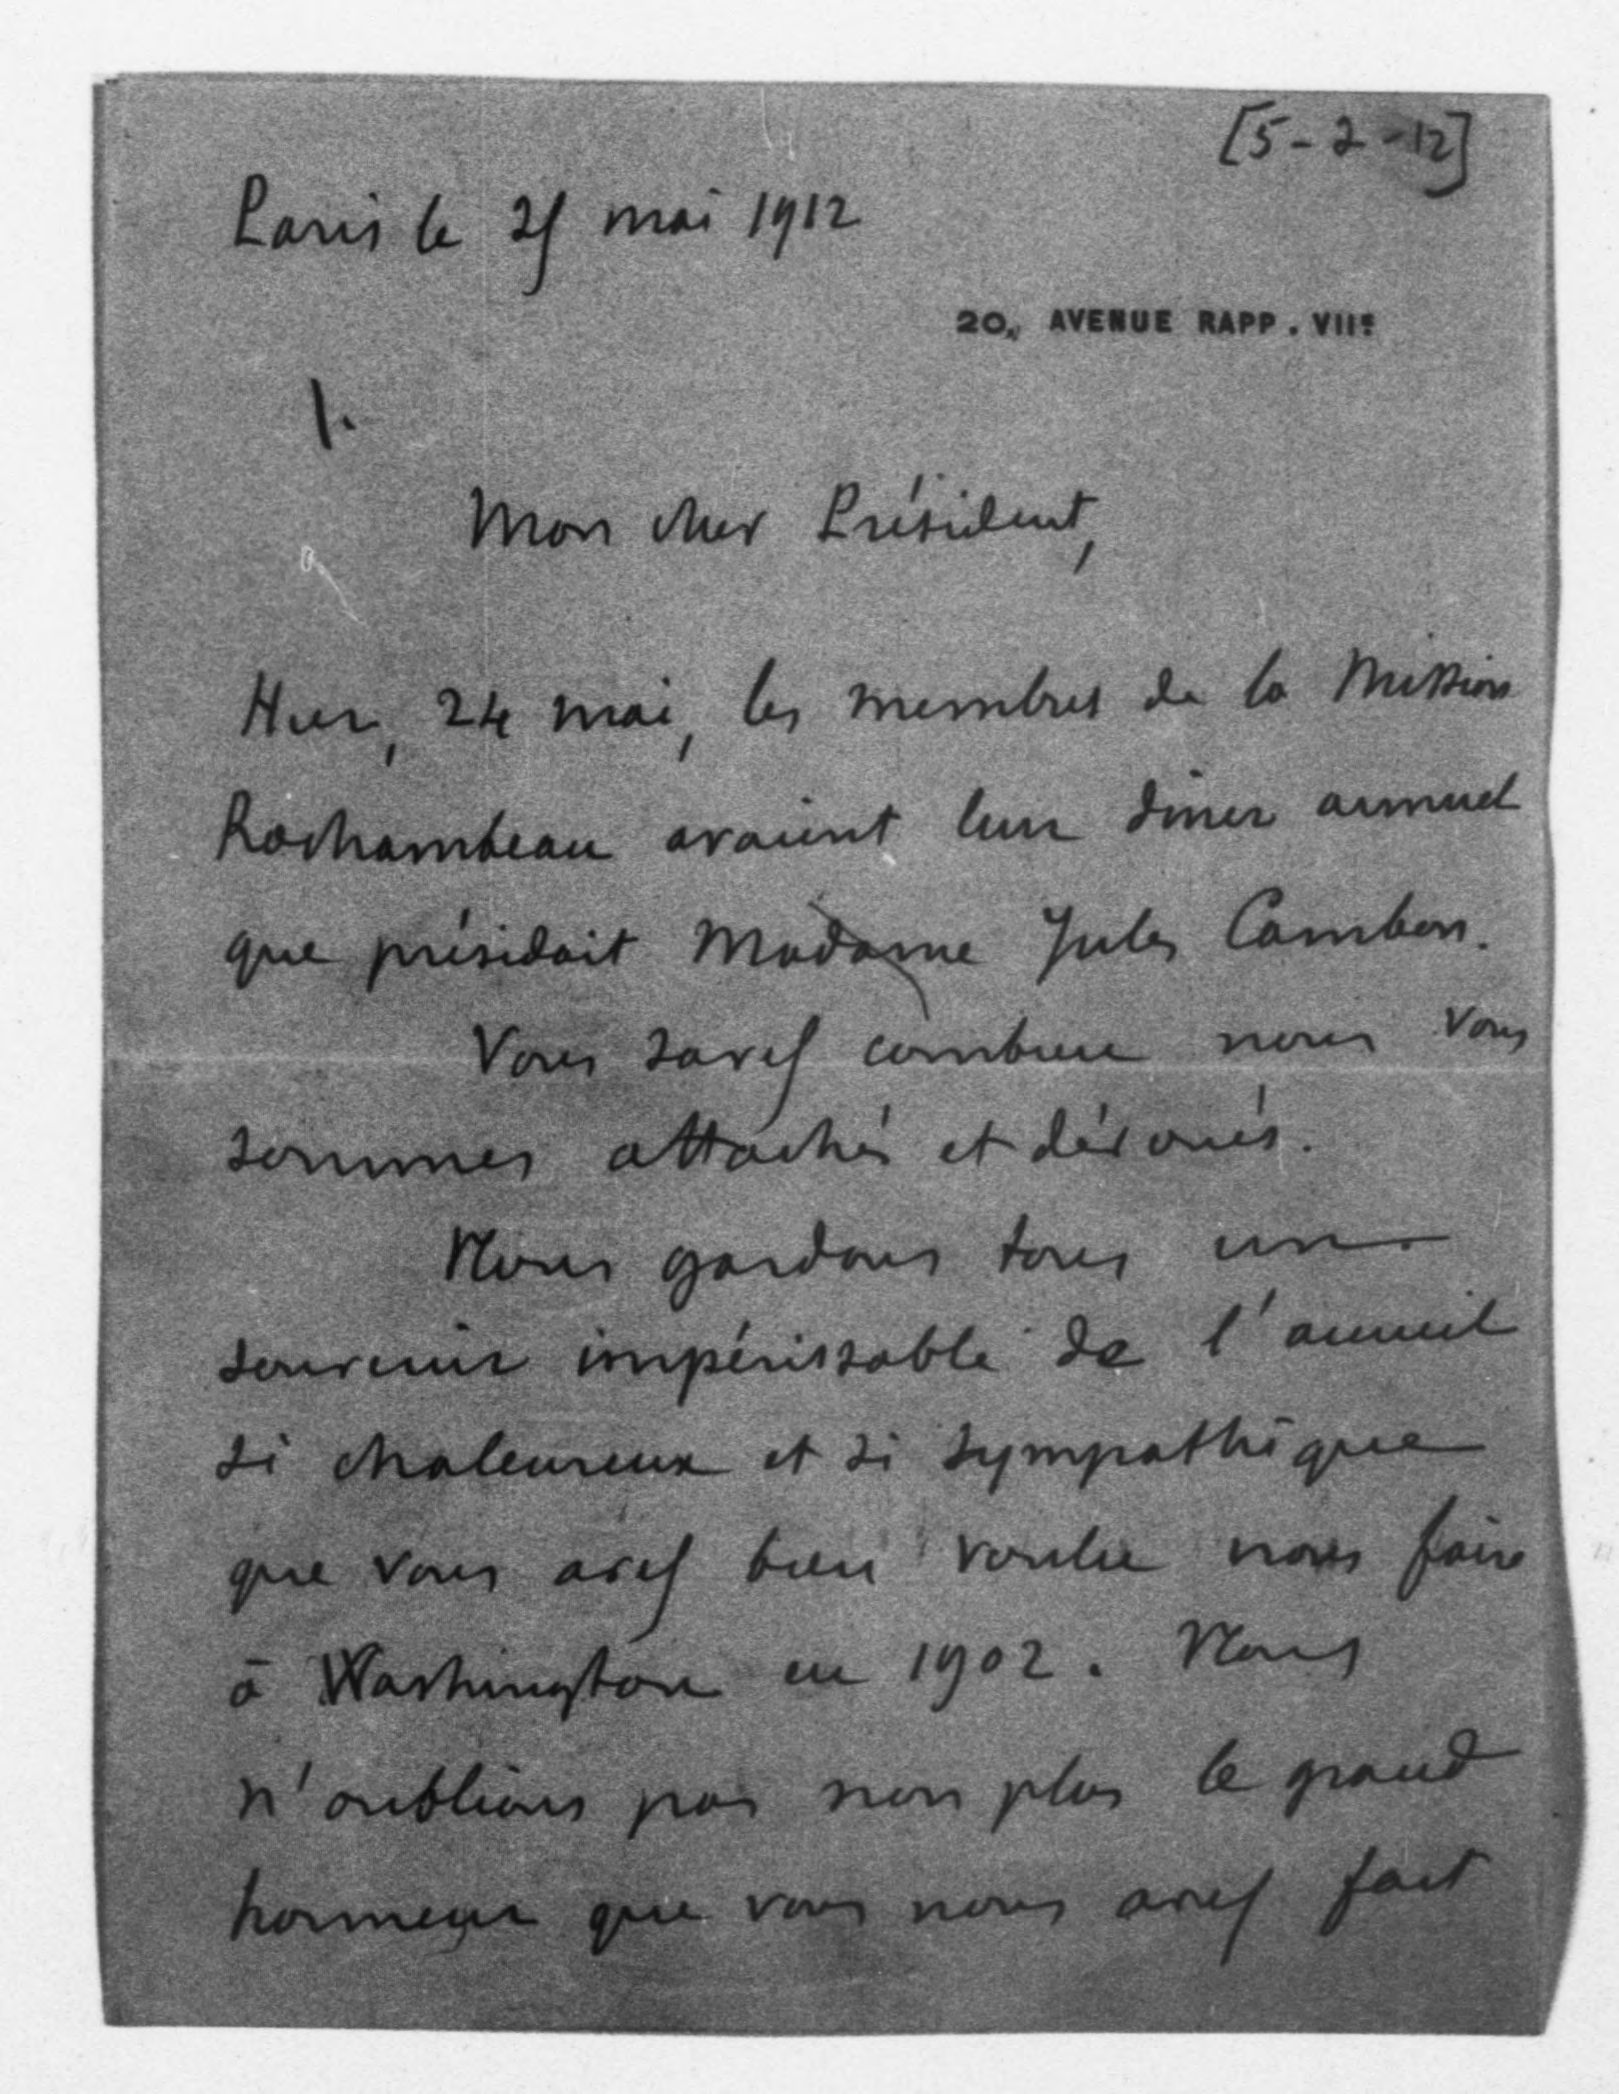 [5-2-12]
Paris le 25 mai 1912
20, AVENUE RAPP. VIIe
1.
Mon cher Président,
Hier, 24 mai, les membres de la Mission
Rochambeau avaient leur diner annuel
que présidait Madame Jules Cambon.
Vous savez combien nous vous
sommes attachés et dévoués.
Nous gardons tous un
souvenir impérissable de l'accueil
si chaleureux et si sympathique
que vous avez bien voulu nous faire
à Washington en 1902. Nous
n'oublions pas non plus le grand
honneur que vous nous avez fait